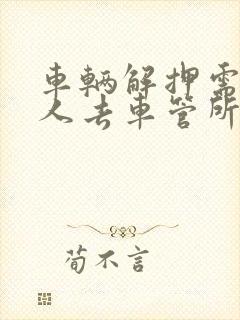 車輛解押需
人去車管所
荀不言